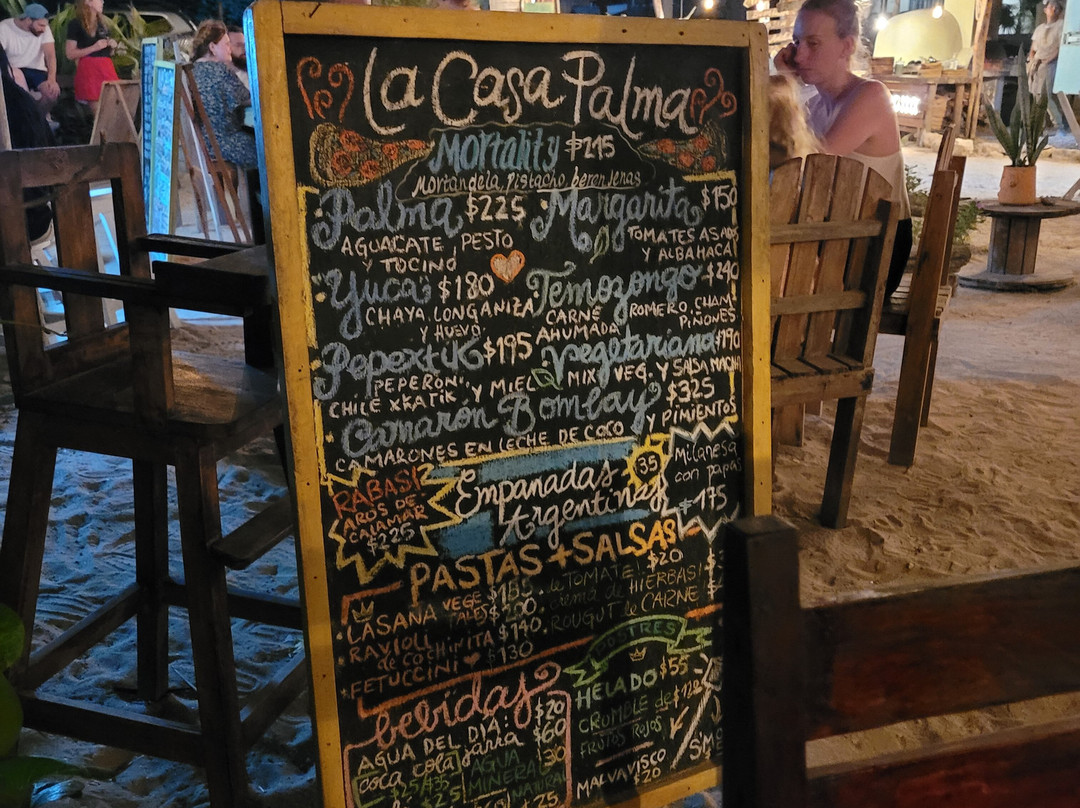 La Casa Palma
Mortality $215
Mortandela, pistacho, berenjenas
Palma $225
AGUACATE, PESTO
Y TOCINO
Margarita $150
TOMATES ASADOS
Y ALBAHACA
"Yuca" $180
CHAYA, LONGANIZA
Y HUEVO
Temozongo $240
CARNE AHUMADA
ROMERO, CHAM
PIÑONES
PepextiK $195
PEPERONI Y MIEL
CHILE XKATIK
Vegetariana $190
MIX VEG. Y SALSA MACHA
Camarón Bombay $325
CAMARONES EN LECHE DE COCO Y PIMIENTOS
RABAS!
AROS DE
CALAMAR
$225
Empanadas 35
Argentinas
Milanesa
con papas
$175
PASTAS + SALSAS
LASAÑA VEGE $185
TALES $200
RAVIOLI $140
de COCHINITA
FETUCCINI $130
de TOMATE! $20
crema de HIERBAS! $
ROUGUT de CARNE $
bebidas
AGUA DEL DÍA: $20
jarra $60
coca cola
$25/$35
AGUA
MINERAL 30
NATURAL
$25
POSTRES
HELADO $55
CRUMBLE de $120
FRUTOS ROJOS
MALVAVISCO
$20